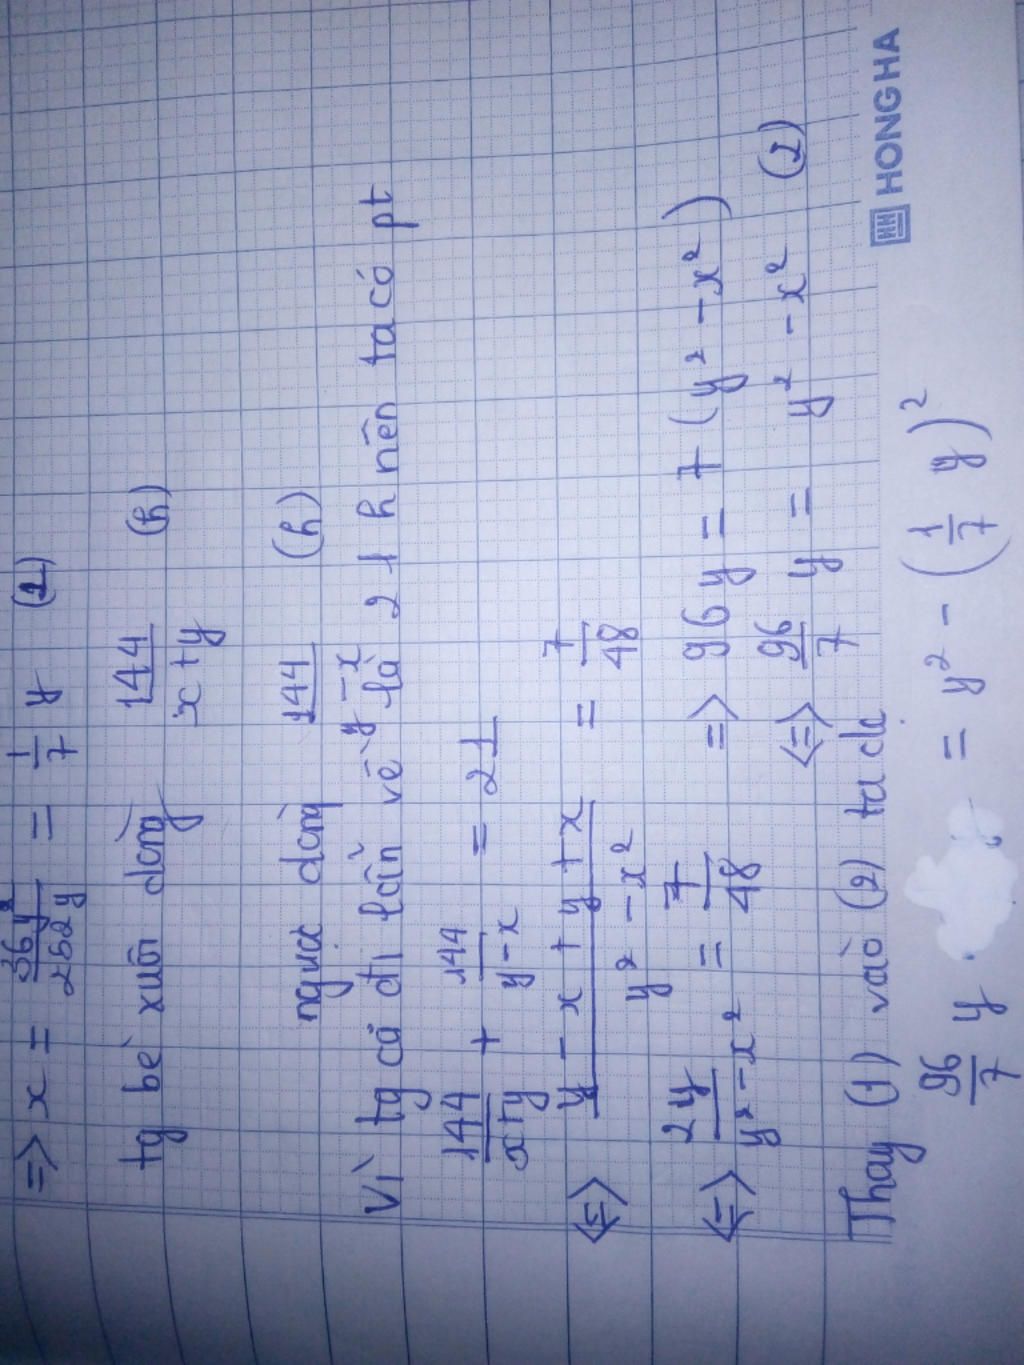 => x = 36y² / 252y = 1/7 y (1)
tg bè xuôi dòng 144 / x+y (h)
ngược dòng 144 / y-x (h)
Vì tg cả đi lẫn về là 21h nên ta có pt
144 / x+y + 144 / y-x = 21
<=> y - x + y + x / y² - x² = 7/48
<=> 2y / y² - x² = 7/48 => 96y = 7(y² - x²)
<=> 96/7 y = y² - x² (2)
Thay (1) vào (2) ta có
96/7 y = y² - (1/7 y)²
HONG HA